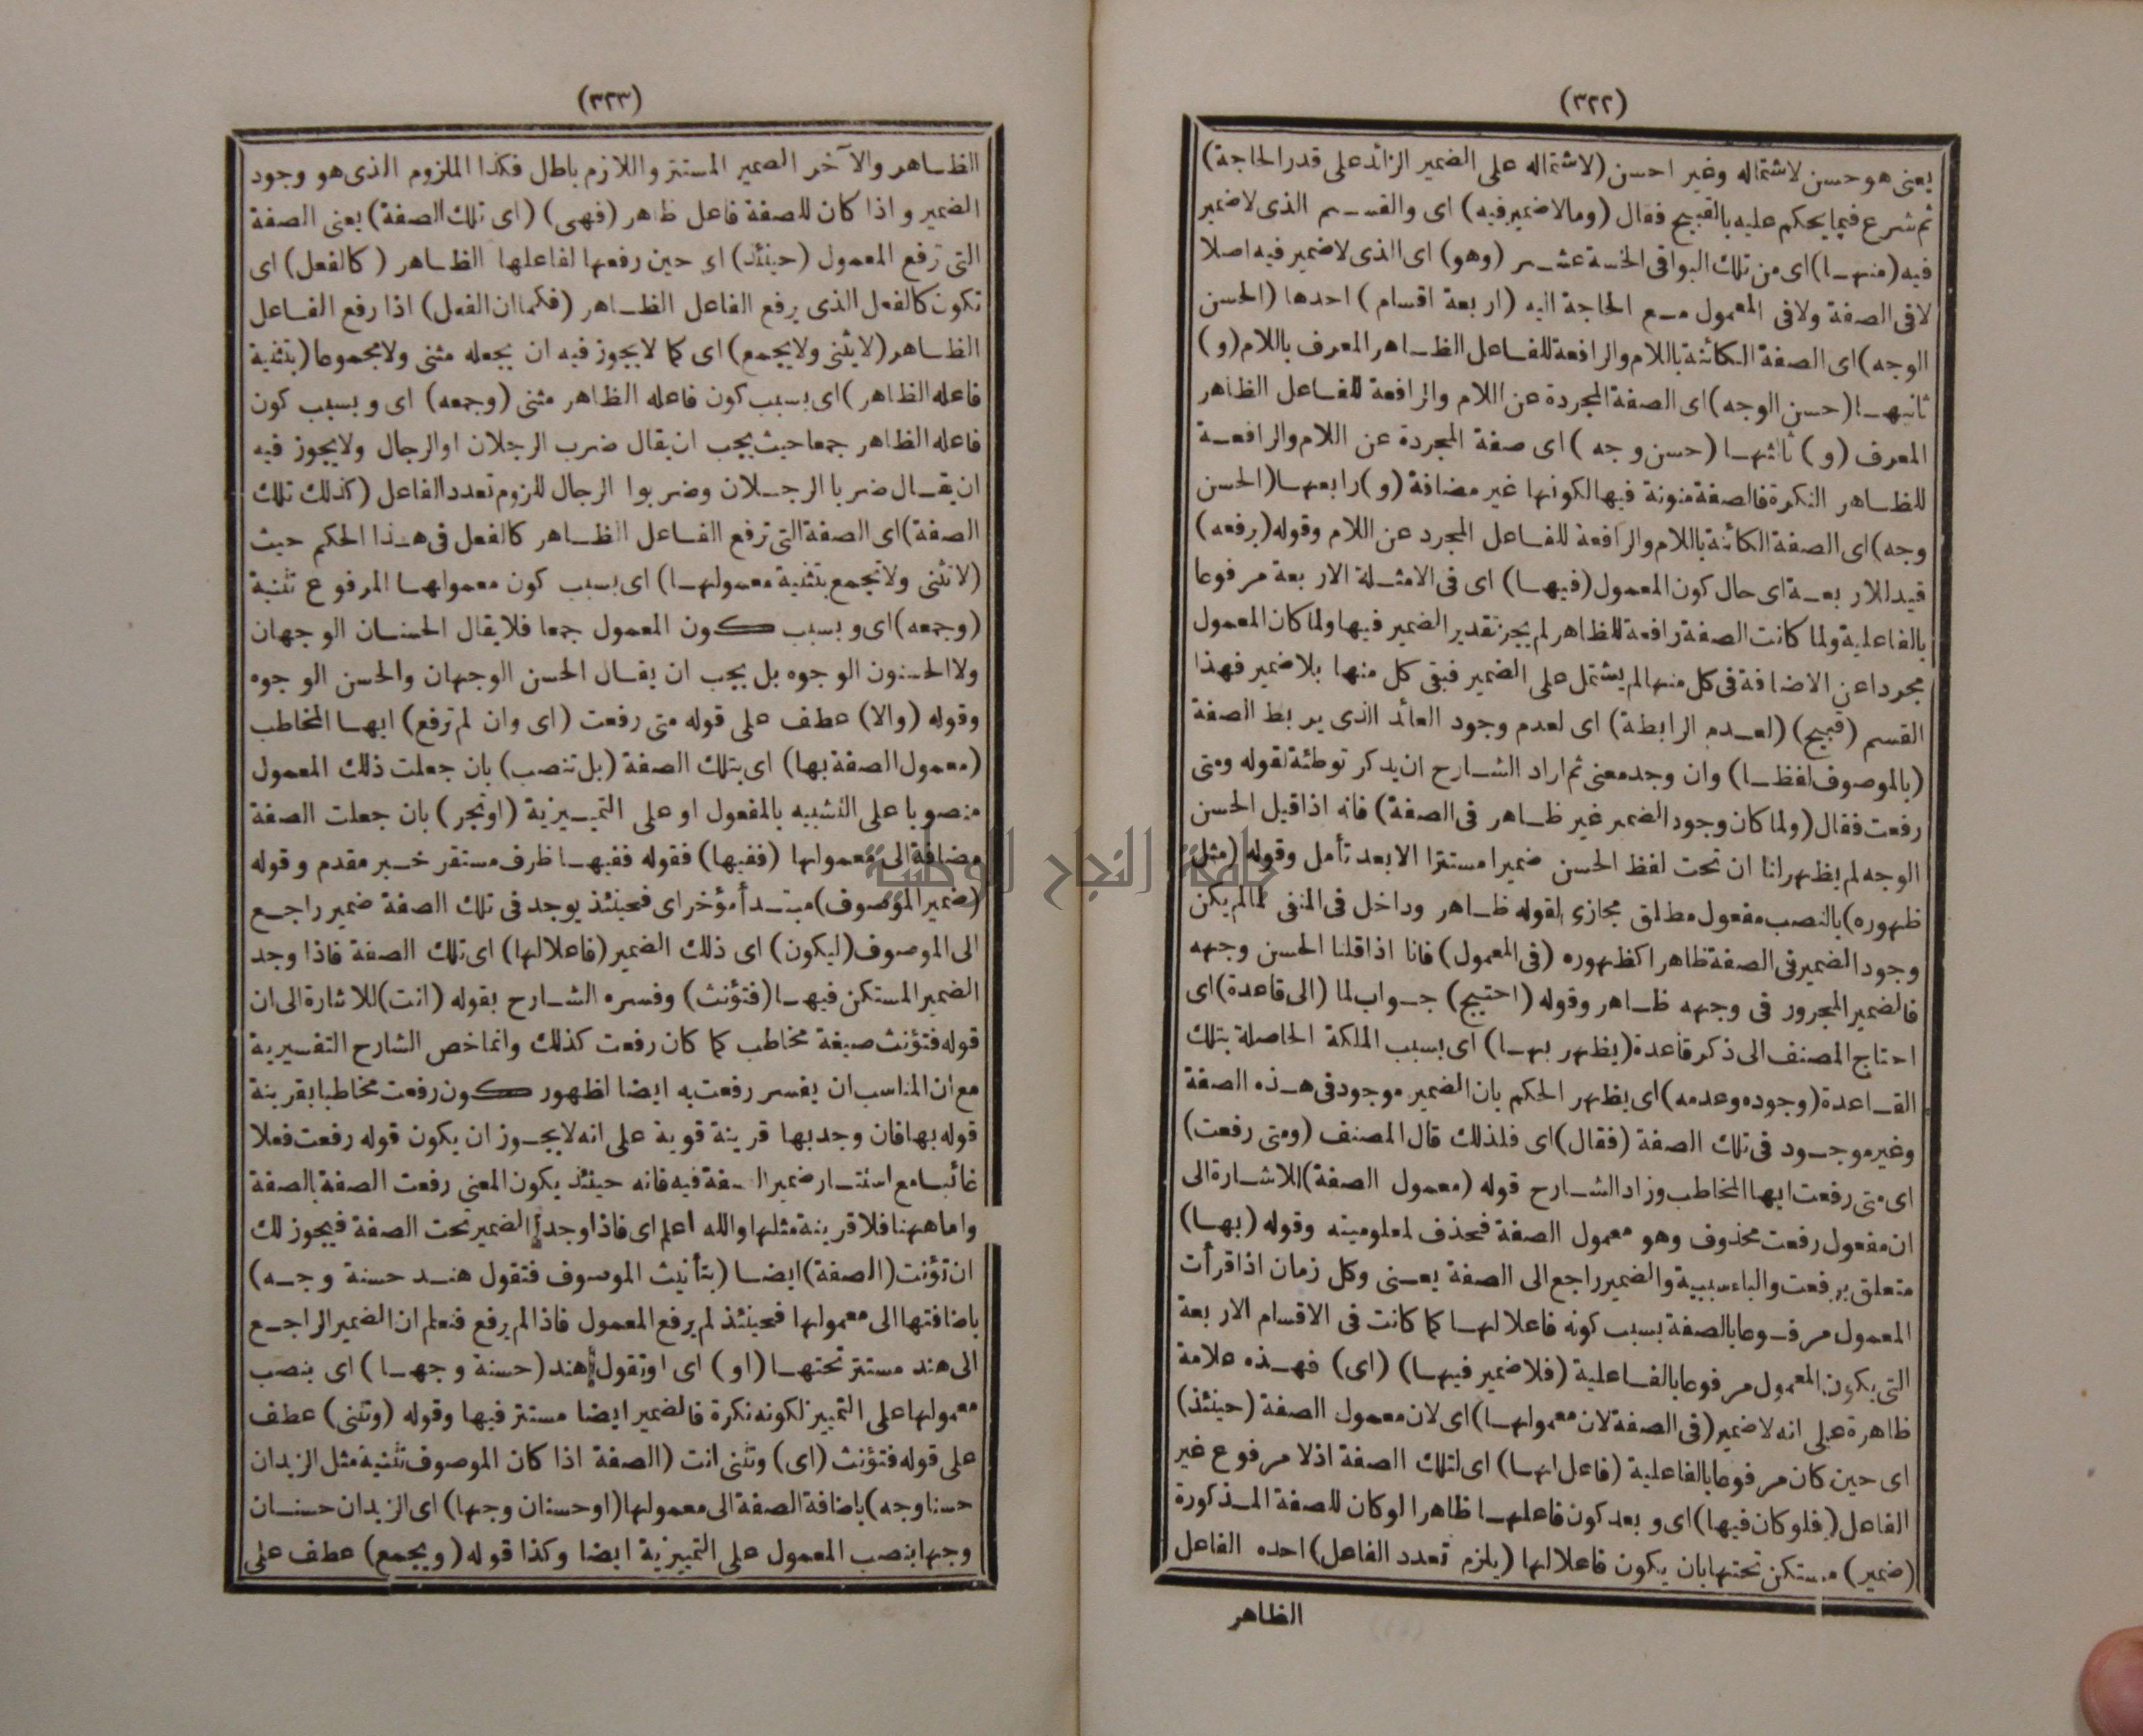 (٣٢٢)
يعنى هو حسن لاشتماله وغير احسن (لاشتماله على الضمير الزائد على قدر الحاجة)
ثم شرع فيما يحكم عليه بالقبيح فقال (وما لاضمير فيه) اى والقسم الذى لاضمير
فيه (منها) اى من تلك البواقى الخمسة عشر (وهو) اى الذى لاضمير فيه اصلا
لافى الصفة ولافى المعمول مع الحاجة اليه (اربعة اقسام) احدها (الحسن
الوجه) اى الصفة الكائنة باللام والرافعة للفاعل الظاهر المعرف باللام (و)
ثانيها (حسن الوجه) اى الصفة المجردة عن اللام والرافعة للفاعل الظاهر
المعرف (و) ثالثها (حسن وجه) اى صفة المجردة عن اللام والرافعة
للظاهر النكرة فالصفة منونة فيها لكونها غير مضافة (و) رابعها (الحسن
وجه) اى الصفة الكائنة باللام والرافعة للفاعل المجرد عن اللام وقوله (برفعه)
قيد للاربعة اى حال كون المعمول (فيها) اى فى الامثلة الاربعة مرفوعا
بالفاعلية ولما كانت الصفة رافعة للظاهر لم يجز تقدير الضمير فيها ولما كان المعمول
مجردا عن الاضافة فى كل منها لم يشتمل على الضمير فبقى كل منها بلاضمير فهذا
القسم (قبيح) (لعدم الرابطة) اى لعدم وجود العائد الذى يربط الصفة
(بالموصوف لفظا) وان وجد معنى ثم اراد الشارح ان يذكر توطئة لقوله ومتى
رفعت فقال (ولما كان وجود الضمير غير ظاهر فى الصفة) فانه اذا قيل الحسن
الوجه لم يظهر لنا ان تحت لفظ الحسن ضميرا مستترا الا بعد تأمل وقوله (مثل
ظهوره) بالنصب مفعول مطلق مجازى لقوله ظاهر وداخل فى المنفى لما لم يكن
وجود الضمير فى الصفة ظاهرا كظهوره (فى المعمول) فانا اذا قلنا الحسن وجهه
فالضمير المجرور فى وجهه ظاهر وقوله (احتيج) جواب لما (الى قاعدة) اى
احتاج المصنف الى ذكر قاعدة (يظهر بها) اى بسبب الملكة الحاصلة بتلك
القاعدة (وجوده وعدمه) اى يظهر الحكم بان الضمير موجود فى هذه الصفة
وغير موجود فى تلك الصفة (فقال) اى فلذلك قال المصنف (ومتى رفعت)
اى متى رفعت ايها المخاطب وزاد الشارح قوله (معمول الصفة) للاشارة الى
ان مفعول رفعت محذوف وهو معمول الصفة فحذف لمعلوميته وقوله (بها)
متعلق برفعت والباء سببية والضمير راجع الى الصفة يعنى وكل زمان اذا قرأت
المعمول مرفوعا بالصفة بسبب كونه فاعلا لها كما كانت فى الاقسام الاربعة
التى يكون المعمول مرفوعا بالفاعلية (فلاضمير فيها) (اى) فهذه علامة
ظاهرة على انه لاضمير (فى الصفة لان معمولها) اى لان معمول الصفة (حينئذ)
اى حين كان مرفوعا بالفاعلية (فاعل لها) اى لتلك الصفة اذ لا مرفوع غير
الفاعل (فلو كان فيها) اى وبعد كون فاعلها ظاهرا لو كان للصفة المذكورة
(ضمير) مستكن تحتها بان يكون فاعلا لها (يلزم تعدد الفاعل) احده الفاعل
الظاهر
(٣٢٣)
الظاهر والآخر الضمير المستتر واللازم باطل فكذا الملزوم الذى هو وجود
الضمير واذا كان للصفة فاعل ظاهر (فهى) (اى تلك الصفة) يعنى الصفة
التى ترفع المعمول (حينئذ) اى حين رفعها لفاعلها الظاهر (كالفعل) اى
تكون كالفعل الذى يرفع الفاعل الظاهر (فكما ان الفعل) اذا رفع الفاعل
الظاهر (لايثنى ولايجمع) اى كما لايجوز فيه ان يجعله مثنى ولامجموعا (بتثنية
فاعله الظاهر) اى بسبب كون فاعله الظاهر مثنى (وجمعه) اى وبسبب كون
فاعله الظاهر جمعا حيث يجب ان يقال ضرب الرجلان اوالرجال ولايجوز فيه
ان يقال ضربا الرجلان وضربوا الرجال للزوم تعدد الفاعل (كذلك تلك
الصفة) اى الصفة التى ترفع الفاعل الظاهر كالفعل فى هذا الحكم حيث
(لاتثنى ولاتجمع بتثنية معمولها) اى بسبب كون معمولها المرفوع تثنية
(وجمعه) اى وبسبب كون المعمول جمعا فلايقال الحسنان الوجهان
ولاالحسنون الوجوه بل يجب ان يقال الحسن الوجهان والحسن الوجوه
وقوله (والا) عطف على قوله متى رفعت (اى وان لم ترفع) ايها المخاطب
(معمول الصفة بها) اى بتلك الصفة (بل تنصب) بان جعلت ذلك المعمول
منصوبا على التشبيه بالمفعول او على التمييزية (اوتجر) بان جعلت الصفة
مضافة الى معمولها (ففيها) فقوله ففيها ظرف مستقر خبر مقدم وقوله
(ضمير الموصوف) مبتدأ مؤخر اى فحينئذ يوجد فى تلك الصفة ضمير راجع
الى الموصوف (ليكون) اى ذلك الضمير (فاعلا لها) اى تلك الصفة فاذا وجد
الضمير المستكن فيها (فتؤنث) وفسره الشارح بقوله (انت) للاشارة الى ان
قوله فتؤنث صيغة مخاطب كما كان رفعت كذلك وانما خص الشارح التفسيربة
مع ان المناسب ان يفسر رفعت به ايضا لظهور كون رفعت مخاطبا بقرينة
قوله بها فان وجد بها قرينة قوية على انه لايجوز ان يكون قوله رفعت فعلا
غائبا مع استتار ضمير الصفة فيه فانه حينئذ يكون المعنى رفعت الصفة بالصفة
واما ههنا فلا قرينة مثلها والله اعلم اى فاذا وجد الضمير تحت الصفة فيجوز لك
ان تؤنث (الصفة) ايضا (بتأنيث الموصوف فتقول هند حسنة وجه)
باضافتها الى معمولها فحينئذ لم يرفع المعمول فاذا لم يرفع فنعلم ان الضمير الراجع
الى هند مستتر تحتها (او) اى اوتقول هند (حسنة وجها) اى بنصب
معمولها على التمييز لكونه نكرة فالضمير ايضا مستتر فيها وقوله (وتثنى) عطف
على قوله فتؤنث (اى) وتثنى انت (الصفة اذا كان الموصوف تثنية مثل الزيدان
حسنا وجه) باضافة الصفة الى معمولها (اوحسنان وجها) اى الزيدان حسنان
وجها بنصب المعمول على التمييزية ايضا وكذا قوله (ويجمع) عطف على
جامعة النجاح الوطنية